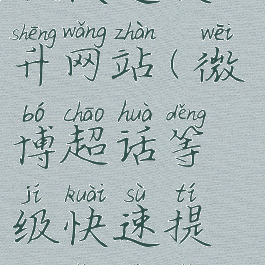 shēng wǎng zhàn wēi
升网站(微
bó chāo huà děng
博超话等
jí kuài sù tí
级快速提